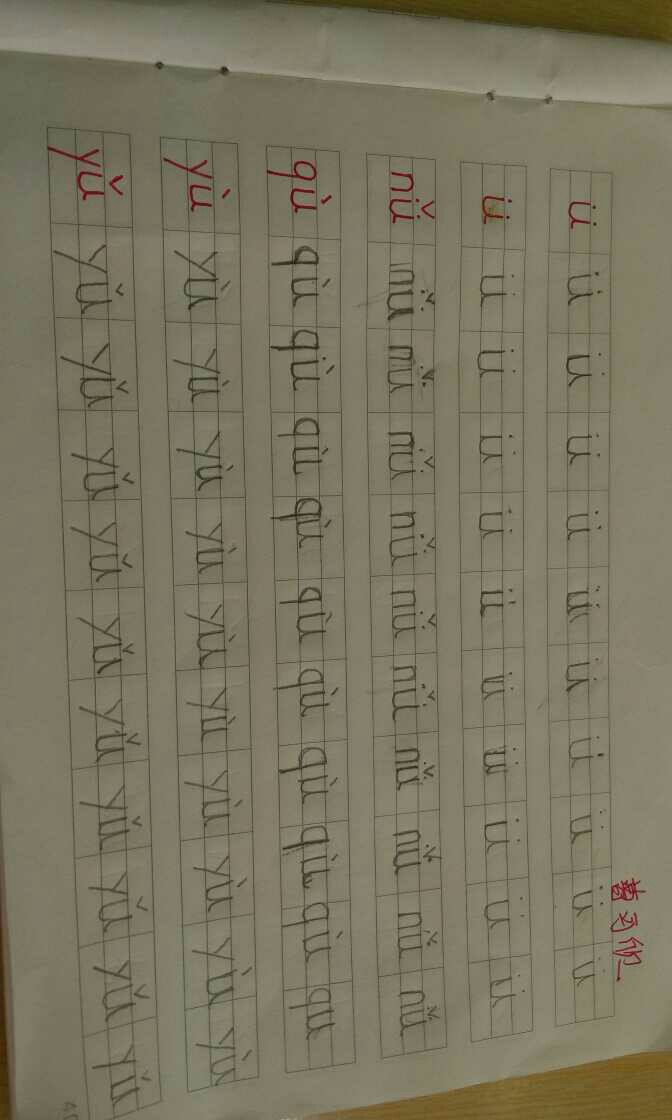 ü ü ü ü ü ü ü ü ü ü ü
ü ü ü ü ü ü ü ü ü ü ü
nǚ nǚ nǚ nǚ nǚ nǚ nǚ nǚ nǚ nǚ nǚ
qù qù qù qù qù qù qù qù qù qù qu
yù yù yù yù yù yù yù yù yù yù yù
yǔ yǔ yǔ yǔ yǔ yǔ yǔ yǔ yǔ yǔ yǔ